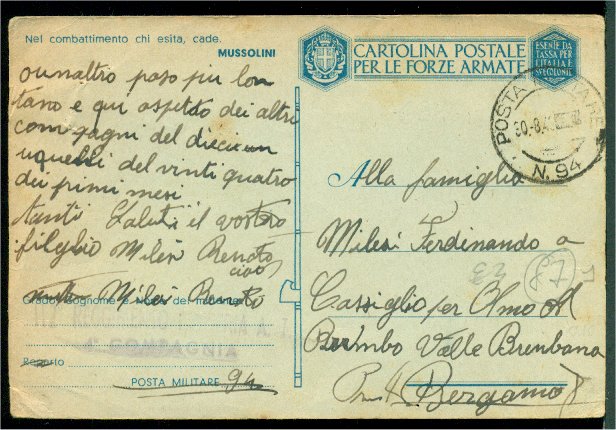 Nel combattimento chi esita, cade.
MUSSOLINI
CARTOLINA POSTALE
PER LE FORZE ARMATE
ESENTE DA
TASSA PER
L'ITALIA E
SUE COLONIE
POSTA MILITARE
N. 94
ounaltro paso piu lon
tano e qui aspetto dei altri
compagni del dieci
uquelli del vinti quatro
dei primi mesi
tanti Saluti il vostro
figlio Milesi Renato
ciao
Milesi Renato
Grado, cognome e nome del mittente
4ª COMPAGNIA
Reparto
POSTA MILITARE 94
Alla famiglia
Milesi Ferdinando a
Cassiglio per Olmo Al
Brembo Valle Brenbana
Bergamo
87